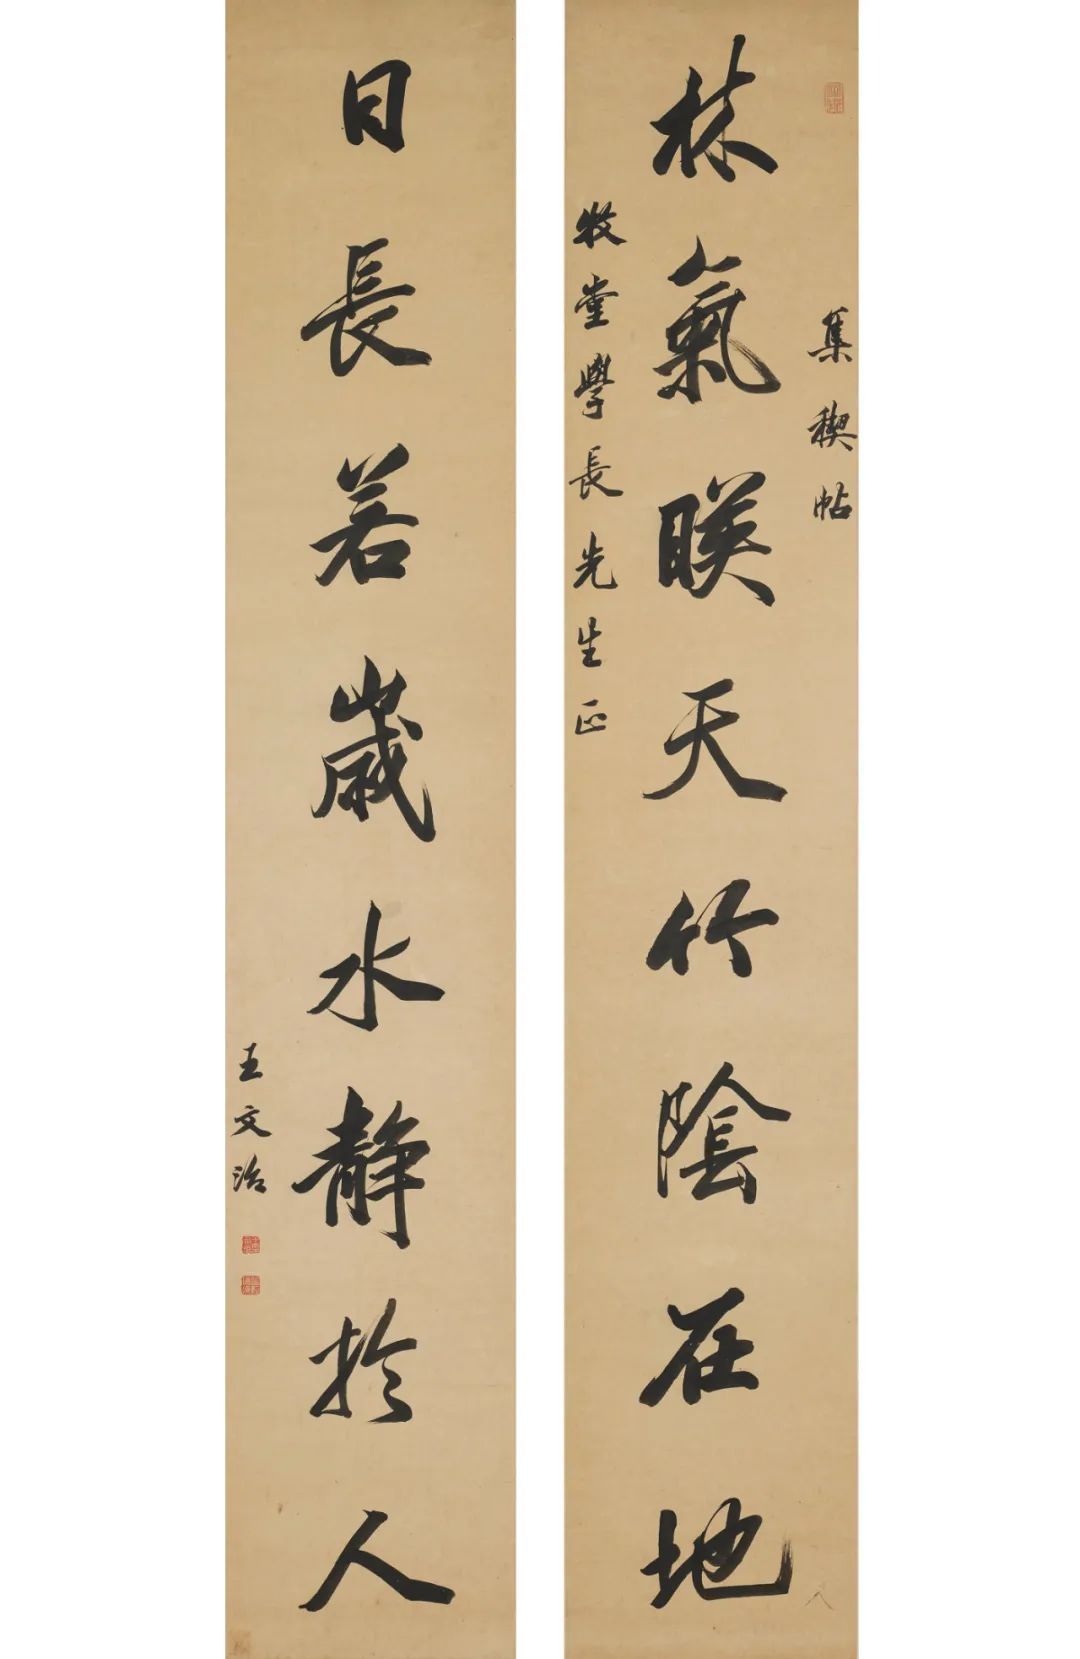 集稧帖
林氣暎天竹陰在地
牧堂學長先生正
日長若歲水靜於人
王文治